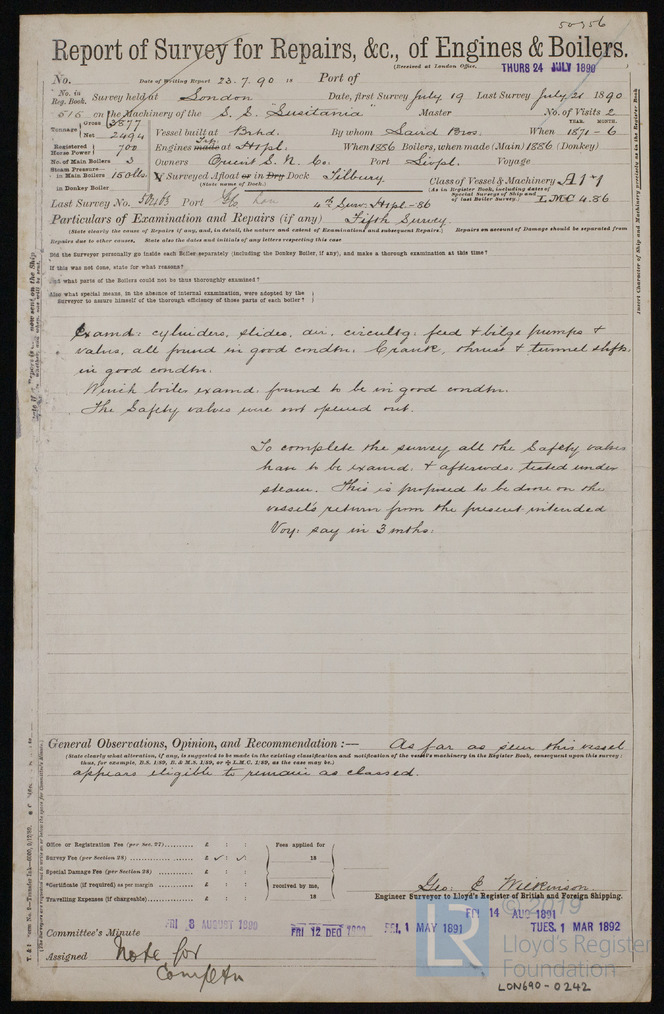 50356
Report of Survey for Repairs, &c., of Engines & Boilers.
(Received at London Office, THURS 24 JULY 1890
No. Date of Writing Report 23.7.90 18 Port of
No. in Reg. Book. Survey held at London Date, first Survey July 19 Last Survey July 21 1890
515 on the Machinery of the S.S. "Lusitania" Master No. of Visits 2
Tonnage Gross 3877 Net 2494 Vessel built at Bhd. By whom Laird Bros. When YEAR. MONTH. 1871-6
Registered Horse Power 700 Engines made at Htpl. When 1886 Boilers, when made (Main) 1886 (Donkey)
No. of Main Boilers 3 Owners Orient S. N. Co. Port Livpl. Voyage
Steam Pressure in Main Boilers 150 lbs. in Donkey Boiler
If Surveyed Afloat or in Dry Dock Tilbury
(State name of Dock.)
Class of Vessel & Machinery A1*1
(As in Register Book, including dates of Special Surveys of Ship and of last Boiler Survey.) LMC 4.86
Last Survey No. Port Lon 4th Surv. Htpl-86
Particulars of Examination and Repairs (if any) Fifth Survey.
(State clearly the cause of Repairs if any, and, in detail, the nature and extent of Examinations and subsequent Repairs.) Repairs on account of Damage should be separated from
Repairs due to other causes. State also the dates and initials of any letters respecting this case
Did the Surveyor personally go inside each Boiler separately (including the Donkey Boiler, if any), and make a thorough examination at this time?
If this was not done, state for what reasons?
And what parts of the Boilers could not be thus thoroughly examined?
Also what special means, in the absence of internal examination, were adopted by the
Surveyor to assure himself of the thorough efficiency of those parts of each boiler?
Examd: cylinders, slides, air, circultg: feed & bilge pumps &
valves, all found in good condtn: Crank, thrust & tunnel shfts.
in good condtn:
Winch boiler examd: found to be in good condtn.
The Safety valves were not opened out.
To complete the survey all the Safety valves
have to be examd: & afterwds: tested under
steam. This is proposed to be done on the
vessel's return from the present intended
Voy: say in 3 mths:
General Observations, Opinion, and Recommendation :— As far as seen this vessel
(State clearly what alteration, if any, is suggested to be made in the existing classification and notification of the vessel's machinery in the Register Book, consequent upon this survey:
thus, for example, B.S. 1/89, B. & M.S. 1/89, or L.M.C. 1/89, as the case may be.)
appears eligible to remain as classed.
Office or Registration Fee (per Sec. 27) £ : :
Survey Fee (per Section 28) £ : :
Special Damage Fee (per Section 28) £ : :
*Certificate (if required) as per margin £ : :
Travelling Expenses (if chargeable) £ : :
Fees applied for
18
received by me,
18
Geo: C Wilkinson.
Engineer Surveyor to Lloyd's Register of British and Foreign Shipping.
Committee's Minute FRI 8 AUGUST 1890 FRI 12 DEC 1890 FRI, 1 MAY 1891 FRI 14 AUG 1891 TUES. 1 MAR 1892
Assigned Note for
Completn
Insert Character of Ship and Machinery precisely as in the Register Book
© 2019
LR
Lloyd's Register
Foundation
LON690-0242